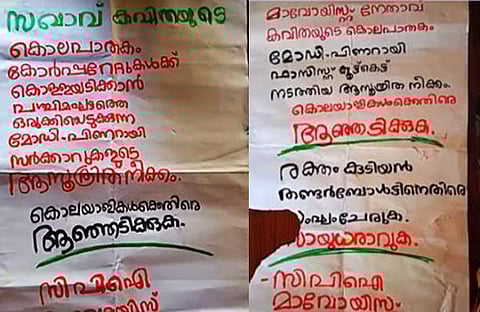 സഖാവ് കവിതയുടെ
കൊലപാതകം
കോർപ്പറേറ്റുകൾക്ക്
കൊള്ളയടിക്കാൻ
പശ്ചിമഘട്ടത്തെ
ഒരുക്കിയെടുക്കുന്ന
മോഡി-പിണറായി
സർക്കാറുകളുടെ
ആസൂത്രിത നീക്കം.
കൊലയാളികൾക്കെതിരെ
ആഞ്ഞടിക്കുക.
സിപിഐ
മാവോയിസ്റ്റ്
മാവോയിസ്റ്റു നേതാവ്
കവിതയുടെ കൊലപാതകം
മോഡി-പിണറായി
ഫാസിസ്റ്റു കൂട്ട്കെട്ട്
നടത്തിയ ആസൂത്രിത നീക്കം.
കൊലയാളികൾക്കെതിരെ
ആഞ്ഞടിക്കുക.
രക്തം കുടിയൻ
തണ്ടർബോൾട്ടിനെതിരെ
സംഘംചേരുക.
സായുധരാവുക.
-സിപിഐ
മാവോയിസം